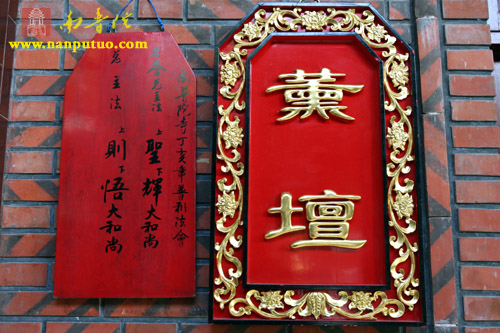 南普陀
www.nanputuo.com
薰
壇
普陀寺丁亥年普利法會
主法 上聖下輝大和尚
主法 上則下悟大和尚